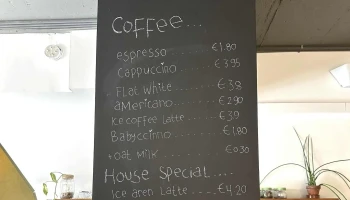 Coffee...
espresso.......€1.80
Cappuccino....€3.95
Flat White.......€3.8
aMericano.......€2.90
Kecoffee Latte....€3.9
Babyccinno.......€1.80
+ oat Milk.......€0.30
House Special....
Ice aren Latte....€4.20